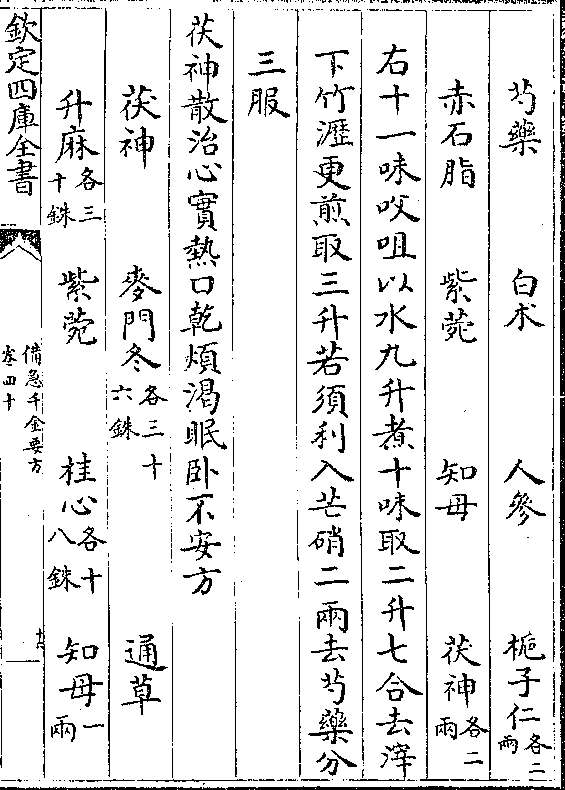 芍藥　白朮　人參　梔子仁各二兩
赤石脂　紫菀　知母　茯神各二兩
右十一味㕮咀以水九升煮十味取二升七合去滓
下竹瀝更煎取三升若須利入芒硝二兩去芍藥分
三服
茯神散治心實熱口乾煩渴眠卧不安方
茯神　麥門冬各三十六銖　通草
升麻各三十銖　紫菀　桂心各十八銖　知母一兩
欽定四庫全書
備急千金要方
卷四十